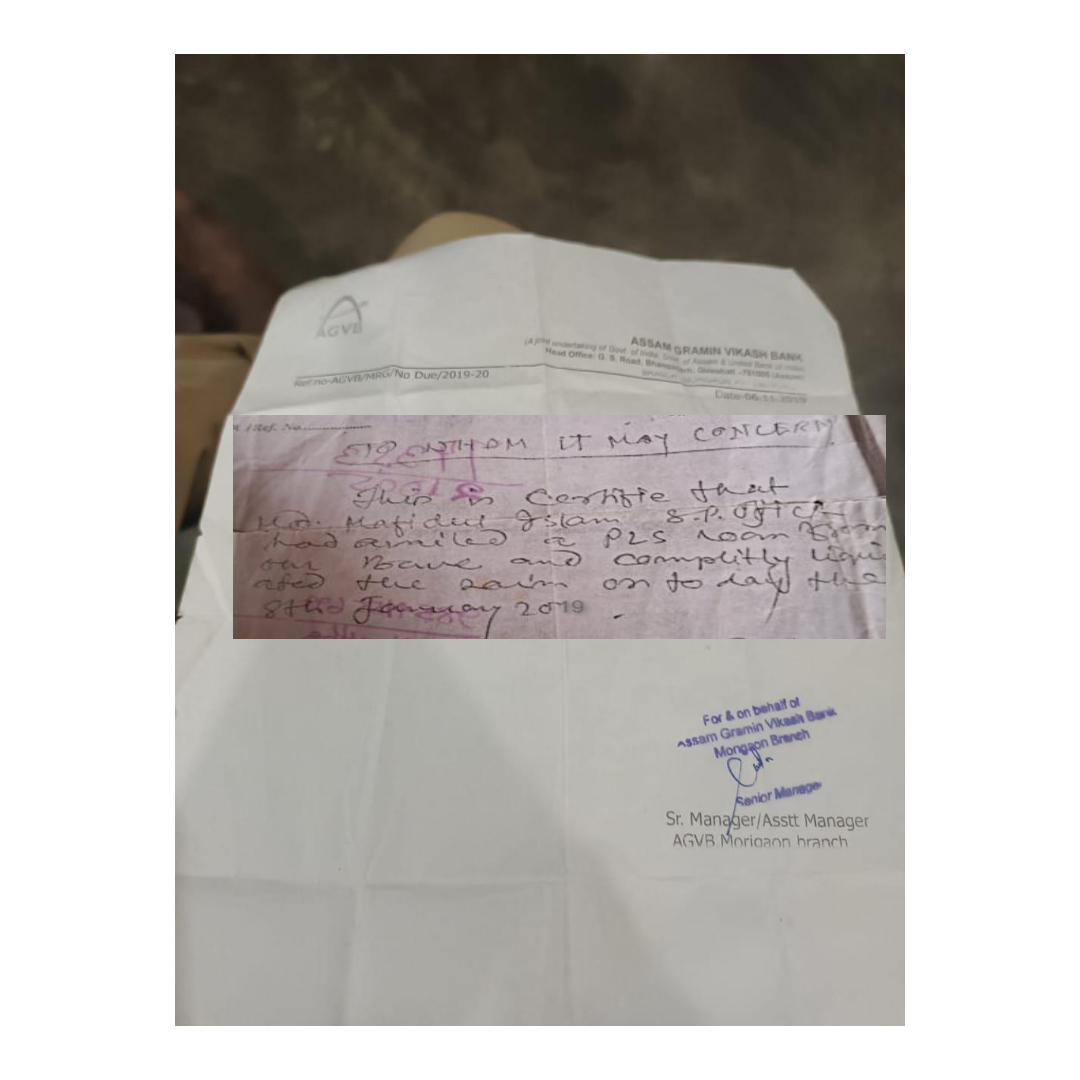 AGVB
ASSAM GRAMIN VIKASH BANK
(A joint undertaking of Govt. of India, Govt. of Assam & United Bank of India)
Head Office: G. S. Road, Bhangagarh, Guwahati -781005 (Assam)
Ref:no-AGVB/MRG/No Due/2019-20
Date-06-11-2019
/Ref. No.
IT MAY CONCERN
This is Certifie that
Md. Mafidul Islam S.P. Office
had a PLS loan from
our and complitly liqui
ated the on to day the
8th January 2019 .
For & on behalf of
Assam Gramin Vikash Bank
Morigaon Branch
Senior Manager
Sr. Manager/Asstt Manager
AGVB Morigaon branch